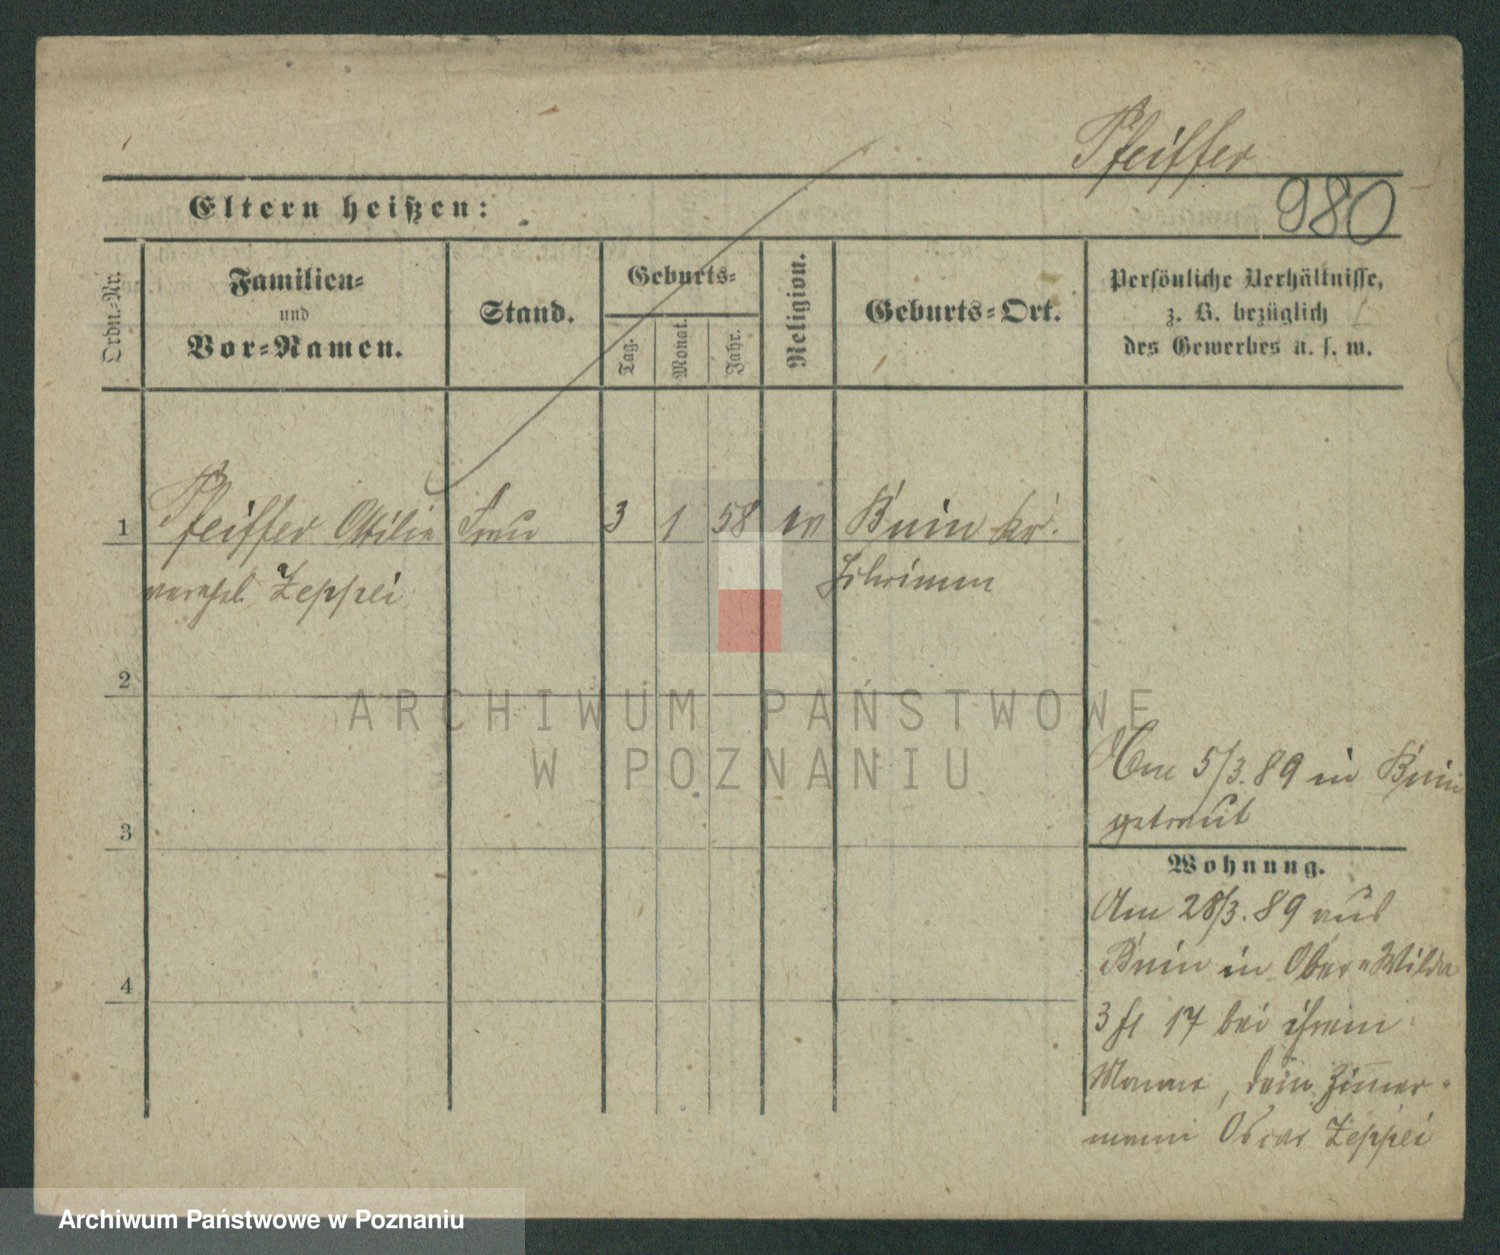 Pfeiffer
980
Eltern heißen:
Ordn.-Nr.
Familien-
und
Vor-Namen.
Stand.
Geburts-
Tag.
Monat.
Jahr.
Religion.
Geburts-Ort.
Persönliche Verhältnisse,
z. B. bezüglich
des Gewerbes u. s. w.
1 Pfeiffer Otilie Frau 3 1 58 ev Bnin Kr.
verehel. Zeppei Schrimm
2
3
4
Am 5/3. 89 in Bnin
getraut
Wohnung.
Am 28/3. 89 aus
Bnin in Ober-Wilda
3 H 17 bei ihrem
Manne, dem Zimmer-
mann Oscar Zeppei
ARCHIWUM PAŃSTWOWE
W POZNANIU
Archiwum Państwowe w Poznaniu